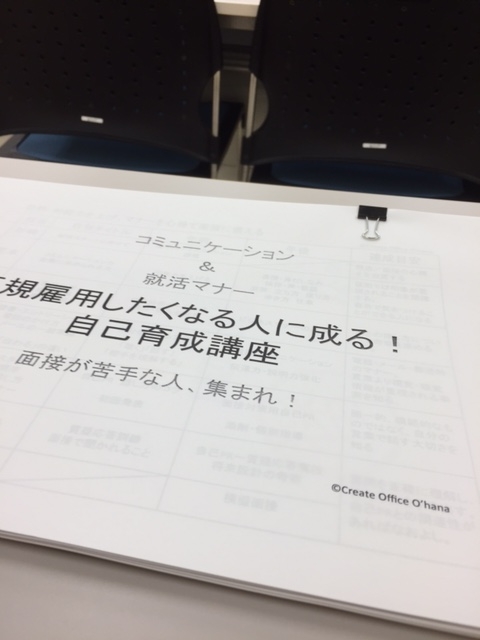 コミュニケーション
&
就活マナー
規雇用したくなる人に成る！
自己育成講座
面接が苦手な人、集まれ！
©Create Office O'hana